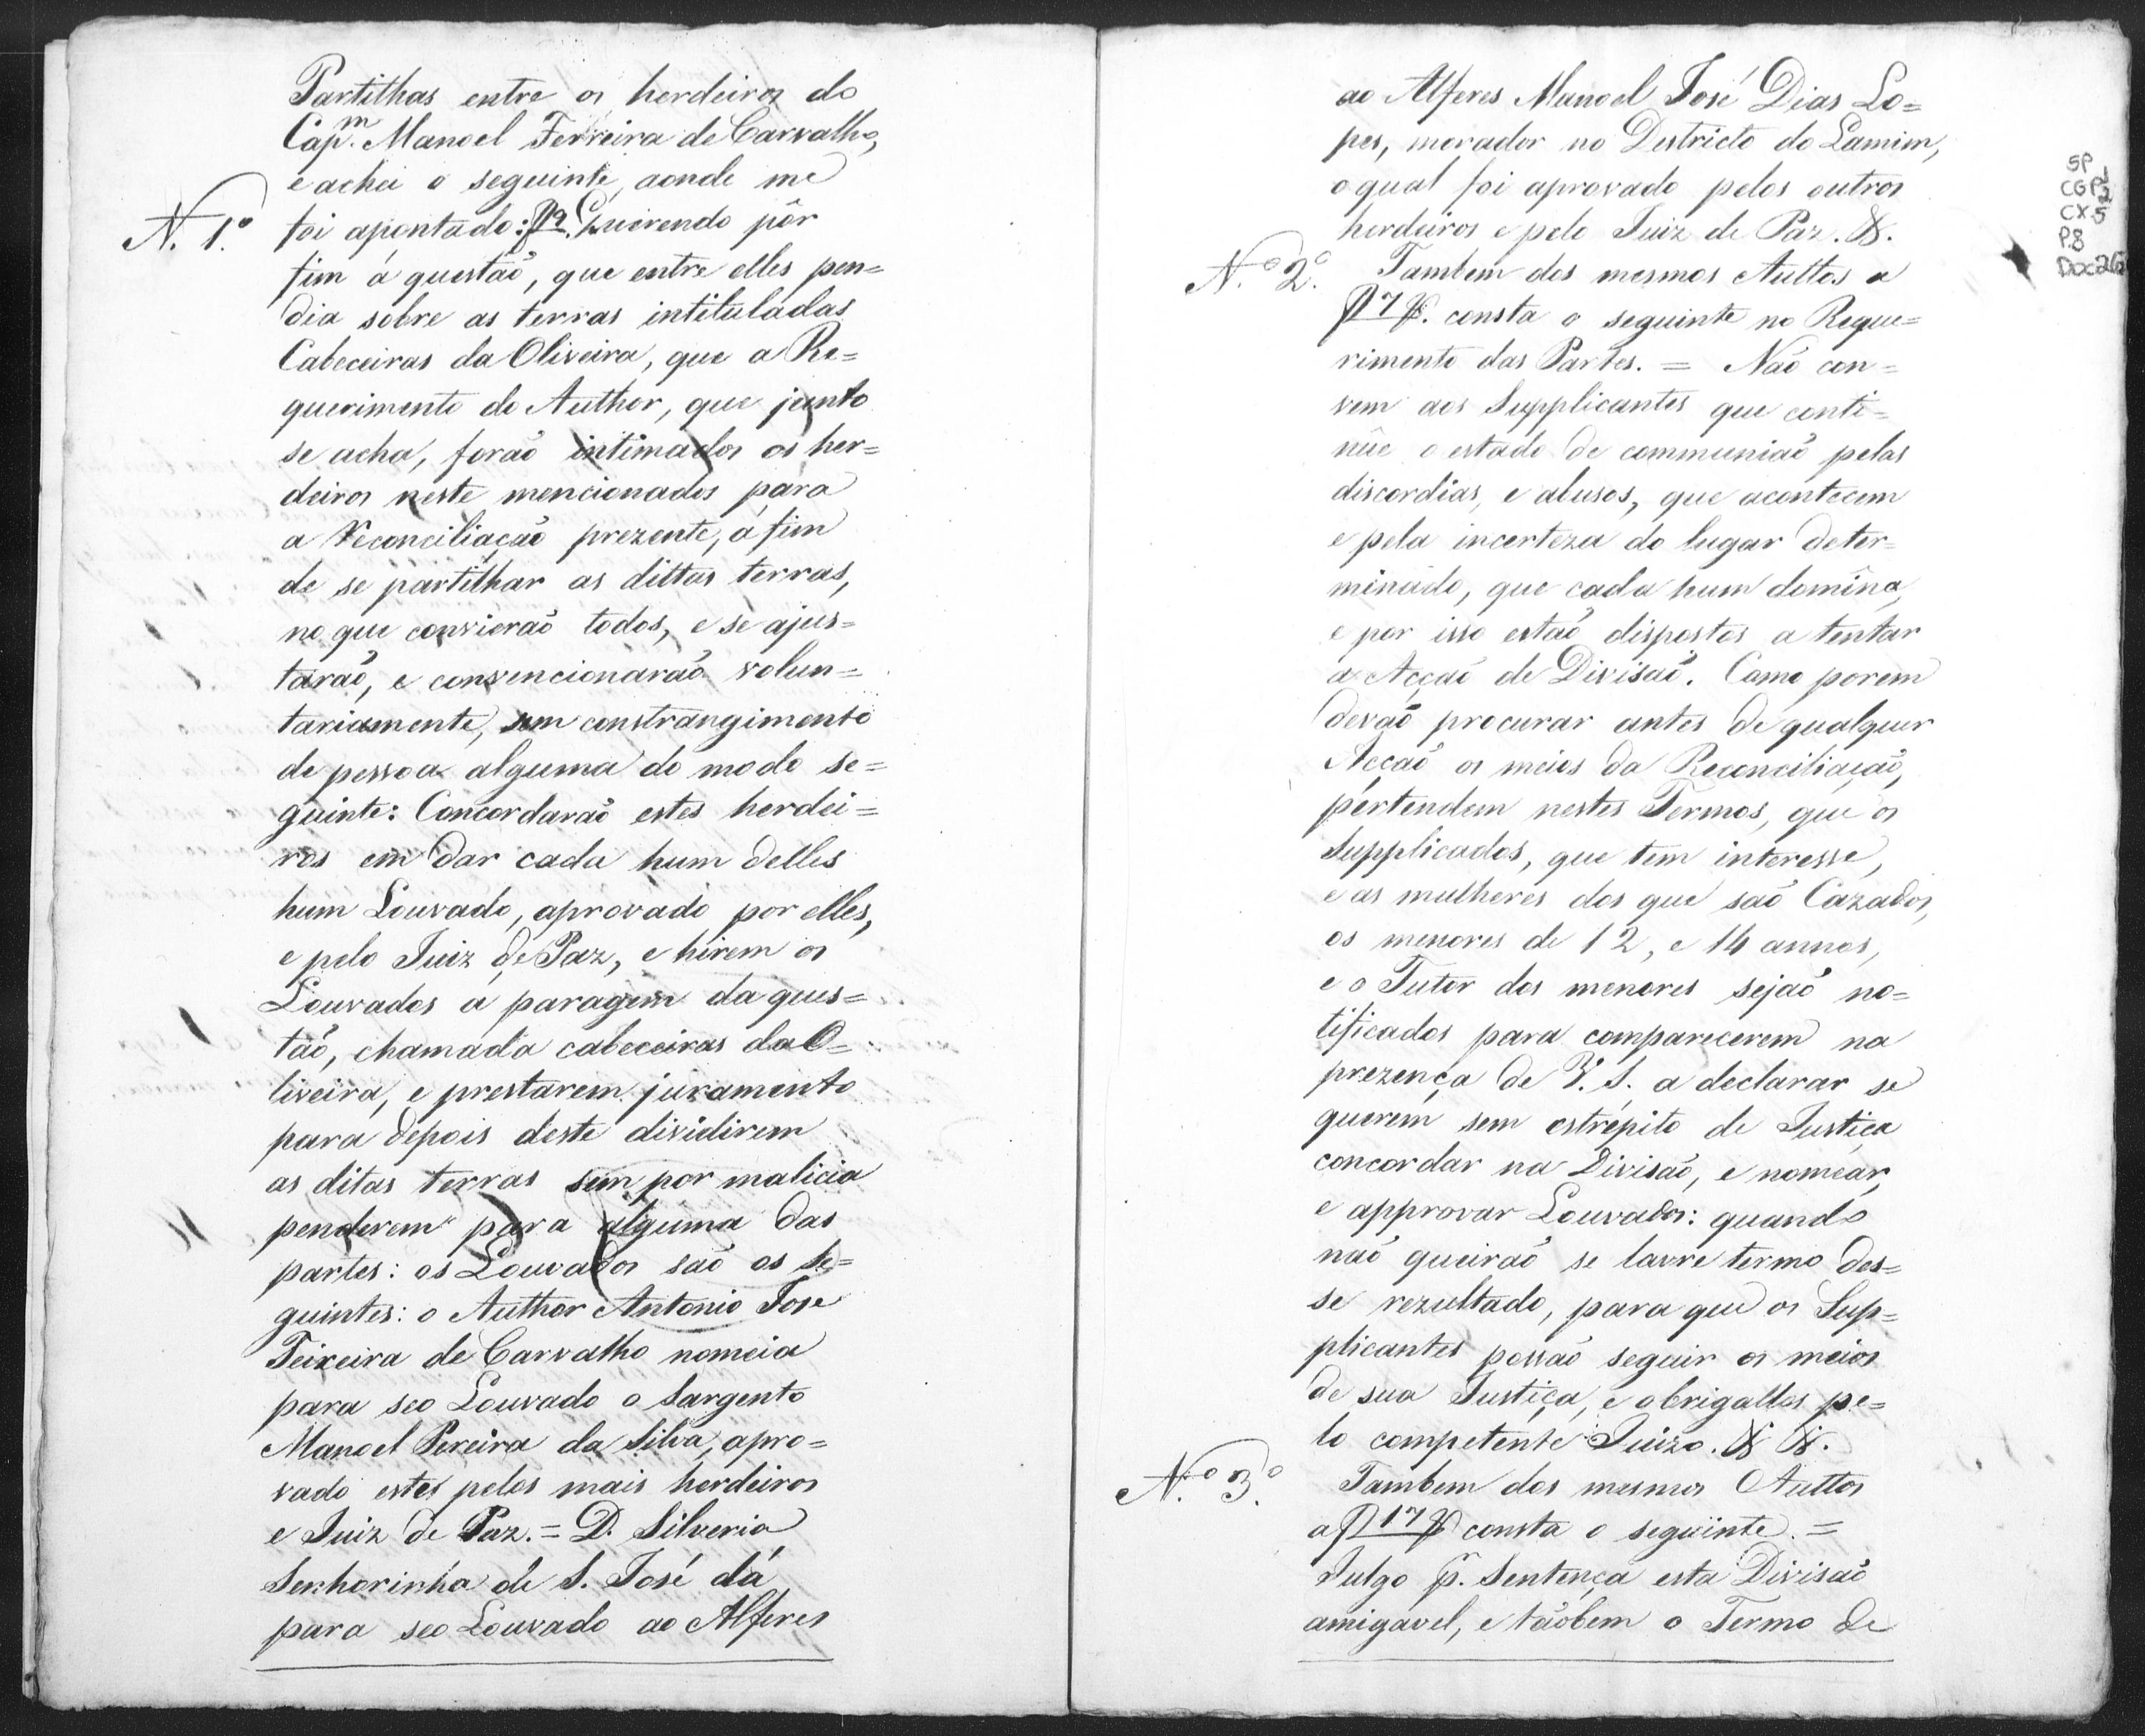 Partilhas entre os herdeiros do
Cap.m Manoel Ferreira de Carvalho,
e achei o seguinte, aonde me
N. 1.º foi apontado: Querendo pôr
fim á questaõ, que entre elles pen=
dia sobre as terras intituladas
Cabeceiras da Oliveira, que a Re=
querimento do Author, que junto
se acha, foraõ intimados os her=
deiros neste mencionados para
a reconciliaçaõ prezente, á fim
de se partilhar as dittas terras,
no que convieraõ todos, e se ajus=
taraõ, e convencionaraõ volun=
tariamente, sem constrangimento
de pessoa alguma do modo se=
guinte: Concordaraõ estes herdei=
ros em dar cada hum delles
hum Louvado, aprovado por elles,
e pelo Juiz de Paz, e hirem os
Louvados á paragem da ques=
taõ, chamada cabeceiras da O=
liveira, e prestarem juramento
para depois deste dividirem
as ditas terras sem por malicia
penderem para alguma das
partes: os Louvados saõ os se=
guintes: o Author Antonio Jose
Teixeira de Carvalho nomeia
para seo Louvado o Sargento
Manoel Pereira da Silva, apro=
vado este pelos mais herdeiros
e Juiz de Paz. = D. Silveria
Senhorinha de S. José dá
para seo Louvado ao Alferes
ao Alferes Manoel José Dias Lo=
pes, morador no Destricto do Lamim,
o qual foi aprovado pelos outros
herdeiros e pelo Juiz de Paz. &.
N.º 2.º Tambem dos mesmos Auttos a
f 7 consta o seguinte no Reque=
rimento das Partes. = Naõ con=
vem aos Supplicantes que conti=
nûe o estado de communiaõ pelas
discordias, e abusos, que acontecem
e pela incerteza do lugar deter=
minado, que cada hum domîna,
e por isso estaõ dispostos a tentar
a Acçaõ de Divisaõ. Como porem
devaõ procurar antes de qualquer
Acçaõ os meios da Reconciliaçaõ,
pertendem nestes Termos, que os
Supplicados, que tem interesse,
e as mulheres dos que saõ Cazados,
os menores de 12, e 14 annos,
e o Tutor dos menores sejaõ no=
tificados para comparecerem na
prezença de V. S. a declarar se
querem sem estrépito de Justiça
concordar na Divisaõ, e nomear,
e approvar Louvados: quando
naõ queiraõ se lavre termo des=
se rezultado, para que os Sup=
plicantes possaõ seguir os meios
de sua Justiça, e obrigallos pe=
lo competente Juizo. & &.
N.º 3.º Tambem dos mesmos Auttos
a f 17 consta o seguinte. =
Julgo p.r Sentença esta Divisaõ
amigavel, e taõbem o Termo de
SP
CGP 1
2
CX 5
P.8
Doc 26